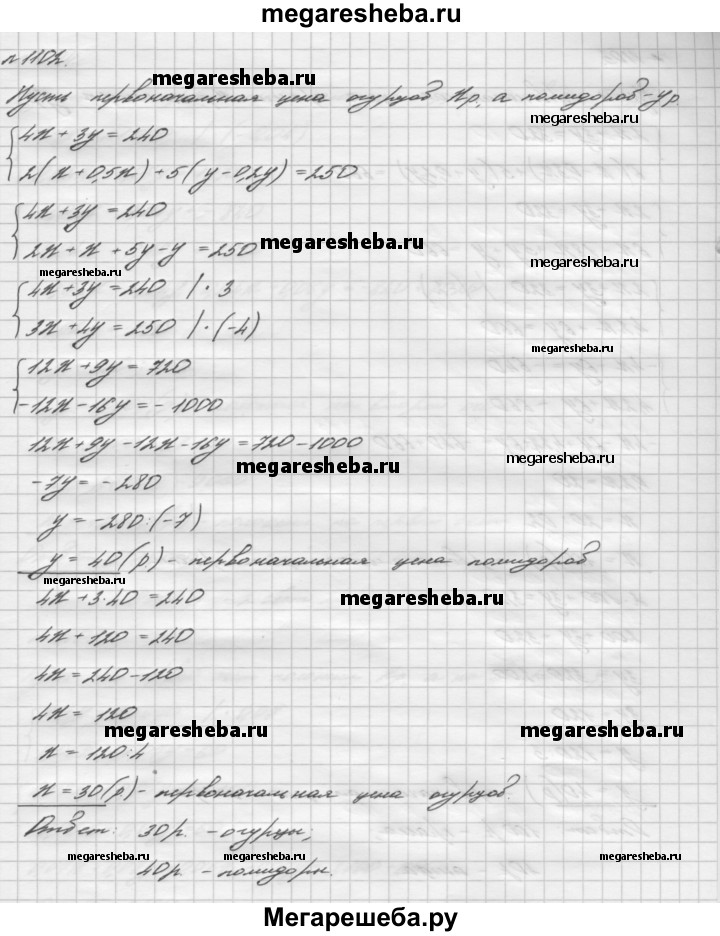 megaresheba.ru
п 1102.
megaresheba.ru
Пусть первоначальная цена огурцов xр, а помидоров - yр
megaresheba.ru
4x + 3y = 240
2(x + 0,5x) + 5(y - 0,2y) = 250
4x + 3y = 240
megaresheba.ru
2x + x + 5y - y = 250
megaresheba.ru
megaresheba.ru
4x + 3y = 240 | · 3
3x + 4y = 250 | · (-4)
megaresheba.ru
12x + 9y = 720
-12x - 16y = - 1000
12x + 9y - 12x - 16y = 720 - 1000
megaresheba.ru
megaresheba.ru
-7y = - 280
y = - 280 : (-7)
y = 40 (р) - первоначальная цена помидоров
megaresheba.ru
4x + 3·40 = 240
megaresheba.ru
4x + 120 = 240
4x = 240 - 120
4x = 120
megaresheba.ru
megaresheba.ru
x = 120 : 4
x = 30 (р) - первоначальная цена огурцов.
Ответ: 30р. - огурцы;
megaresheba.ru
megaresheba.ru
megaresheba.ru
40р. - помидоры.
Мегарешеба.ру